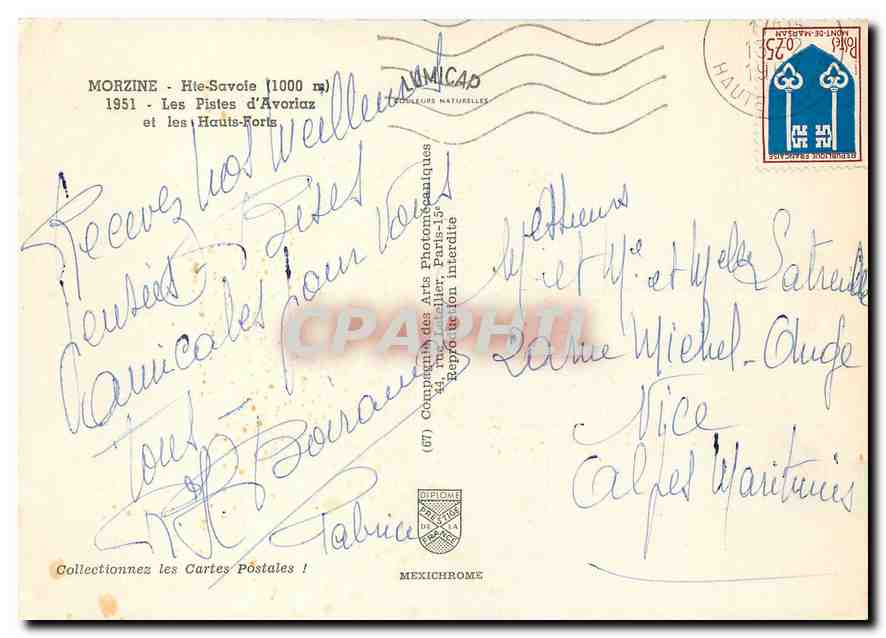 MORZINE - Hte-Savoie (1000 m)
1951 - Les Pistes d'Avoriaz
et les Hauts-Forts
LUMICAP
COULEURS NATURELLES
Recevez nos meilleures
pensées - Bises
amicales pour vous
tous -
Fabrice
Collectionnez les Cartes Postales !
(67) Compagnie des Arts Photomécaniques
44, rue Letellier, Paris-15e
Reproduction interdite
DIPLOME
PRESTIGE
DE LA
FRANCE
MEXICHROME
HAUTE
0,25 Postes
MONT-DE-MARSAN
REPUBLIQUE FRANCAISE
Messieurs
M. et Me et Melle
2 rue Michel-Ange
Nice
Alpes Maritimes
CPAPHIL